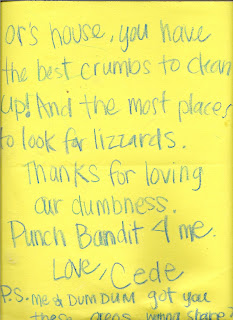 or's house, you have
the best crumbs to clean
up! And the most places
to look for lizzards.
Thanks for loving
our dumbness.
Punch Bandit 4 me.
Love, Cede
P.S. me & DUM DUM got you
these oreos wanna share?